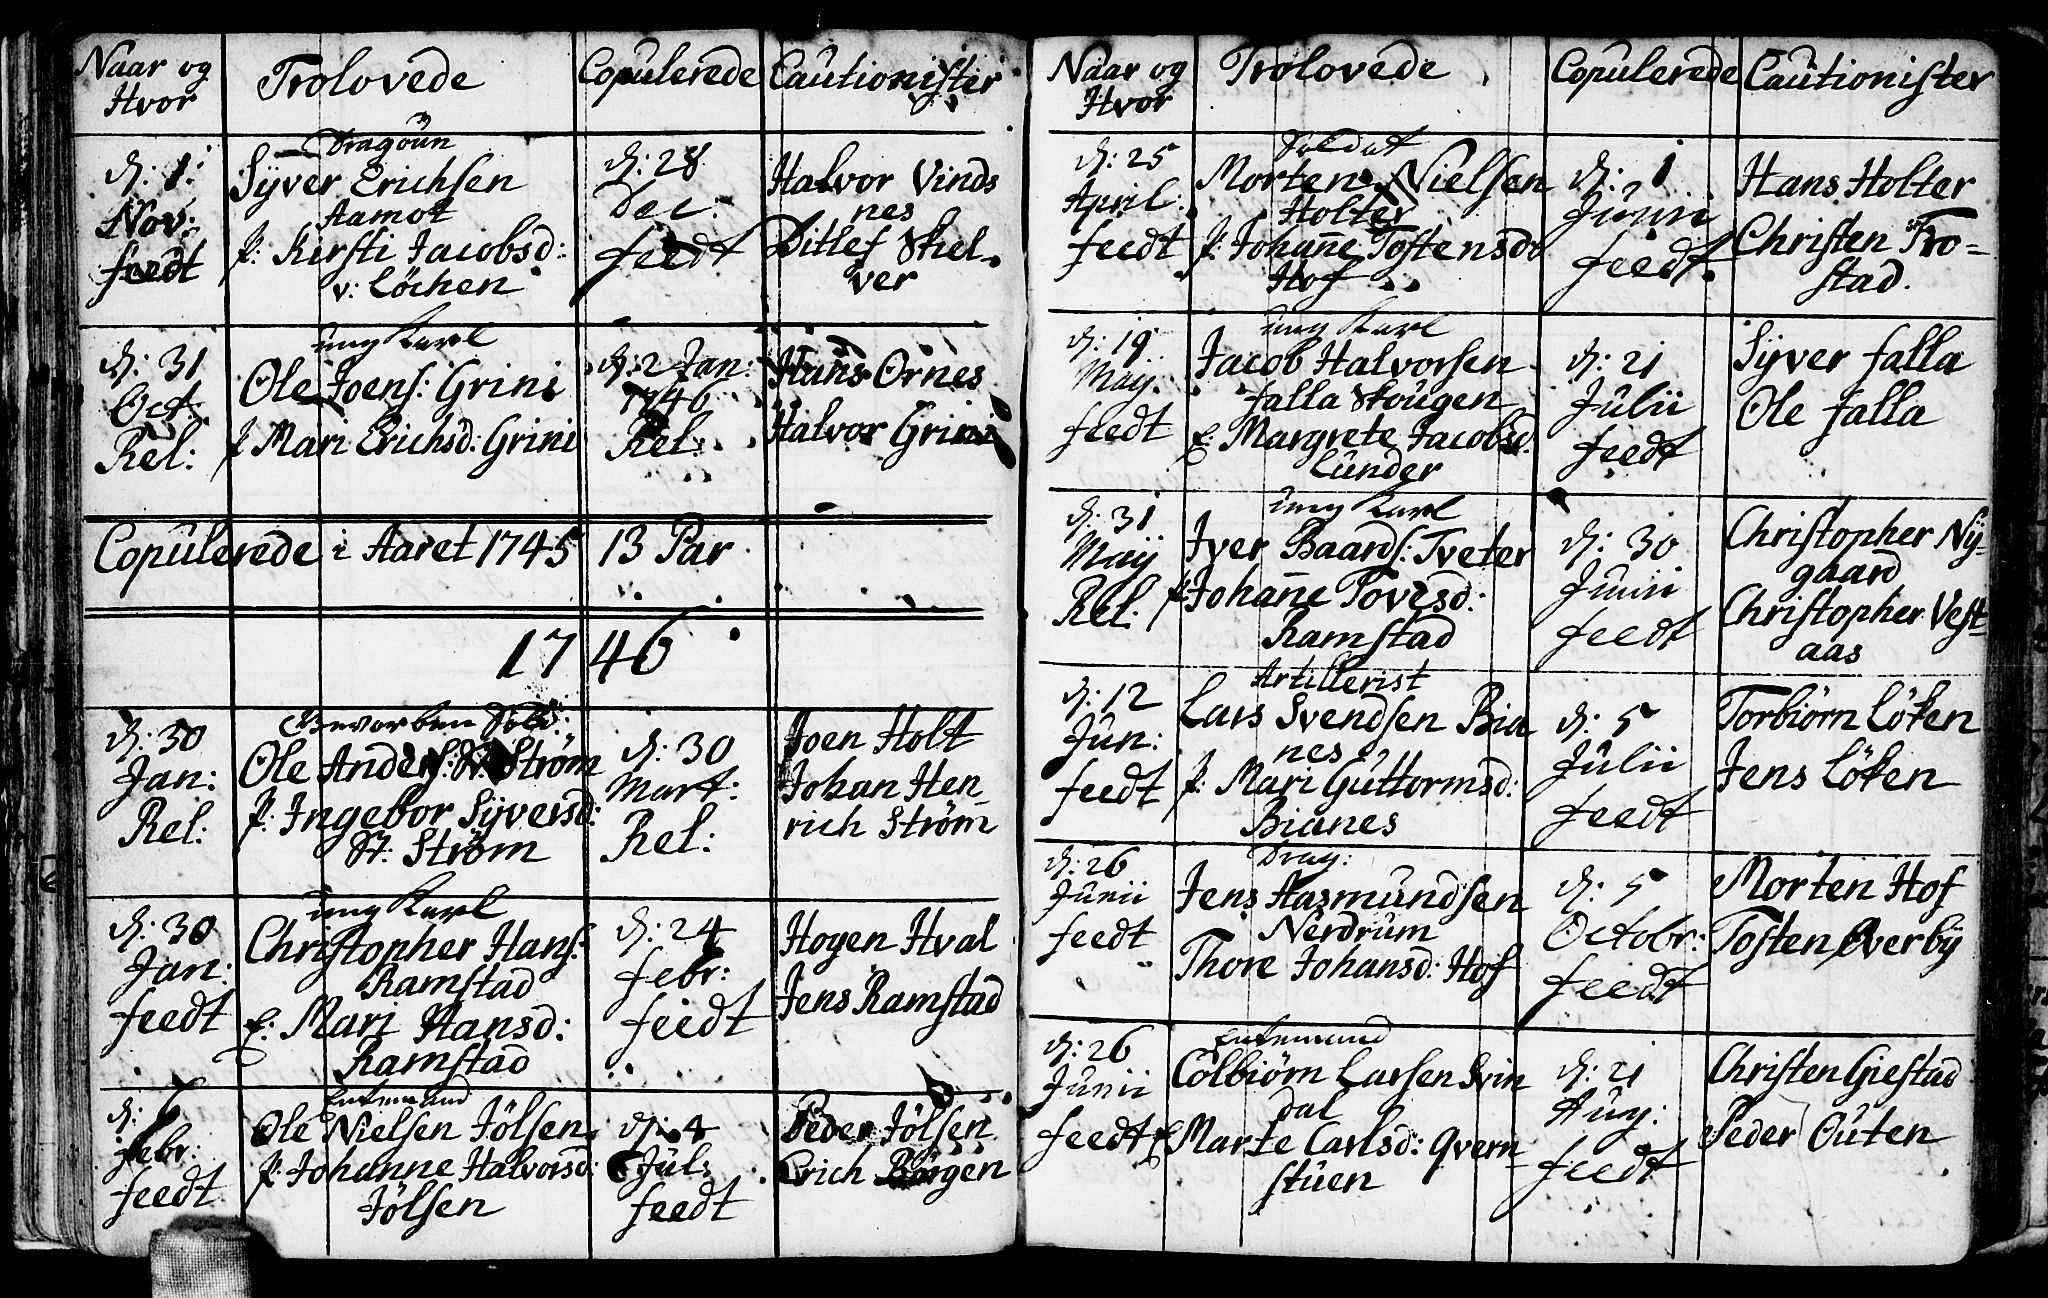 Naar og
Hvor
Trolovede
Copulerede
Cautionister
d: 1:
Nov:
feedt
Dragoun
Syver Erichsen
Aamot
P: Kirsti Jacobsd:
v: Löchen
d: 28
Dec:
feedt
Halvor Vinds
nes
Ditlef Skiel-
ver
d: 31
Oct:
Rel:
ung Karl
Ole Joens: Grini
P Mari Erichsd: Grini
d: 2 Jan:
1746
Rel:
Hans Ornes
Halvor Grini
Copulerede i Aaret 1745 13 Par
1746
d: 30
Jan:
Rel:
Bevorben Sold:
Ole Anders: St: Strøm
P: Ingebor Syversd:
St: Strøm
d: 30
Mart:
Rel:
Joen Holt
Johan Hen-
rich Strøm
d: 30
Jan:
feedt
ung Karl
Christopher Hans:
Ramstad
E: Mari Hansd:
Ramstad
d: 24
febr:
feedt
Hogen Hval
Jens Ramstad
d: 6
febr:
feedt
Enkemand
Ole Nielsen Jölsen
P: Johanne Halvorsd:
Jölsen
d: 4
Jul:
feedt
Peder Jölsen
Erich Börgen
Naar og
Hvor
Trolovede
Copulerede
Cautionister
d: 25
April
feedt
Soldat
Morten Nielsen
Holter
P: Johan̄e Tostensd:
Hof
d: 1
Junii
feedt
Hans Holter
Christen Tro-
stad.
d: 19
May.
feedt
ung Karl
Jacob Halvorsen
falla Skougen
E: Margrete Jacobsd.
Lunder
d: 21
Julii
feedt
Syver falla
Ole falla
d: 31
Maij
Rel:
ung Karl
Iver Baards: Tveter
P Johan̄e Povesd:
Ramstad
d: 30
Junii
feedt
Christopher Ny-
gaard
Christopher Vest-
aas
d: 12
Jun:
feedt
Artillerist
Lars Svendsen Bia
nes
P: Mari Guttormsd:
Bianes
d: 5
Julii
feedt
Torbiørn Löken
Jens Löken
d: 26
Junii
feedt
Drag:
Jens Aasmundsen
Nerdrum
Thore Johansd: Hof
d: 5
Octobr:
feedt
Morten Hof
Tosten Overby
d: 26
Junii
feedt
Enkemand
Colbiørn Larsen Svin
dal
E Marte Carlsd: Qvern-
stuen
d: 21
Aug:
feedt
Christen Giestad
Peder Outen